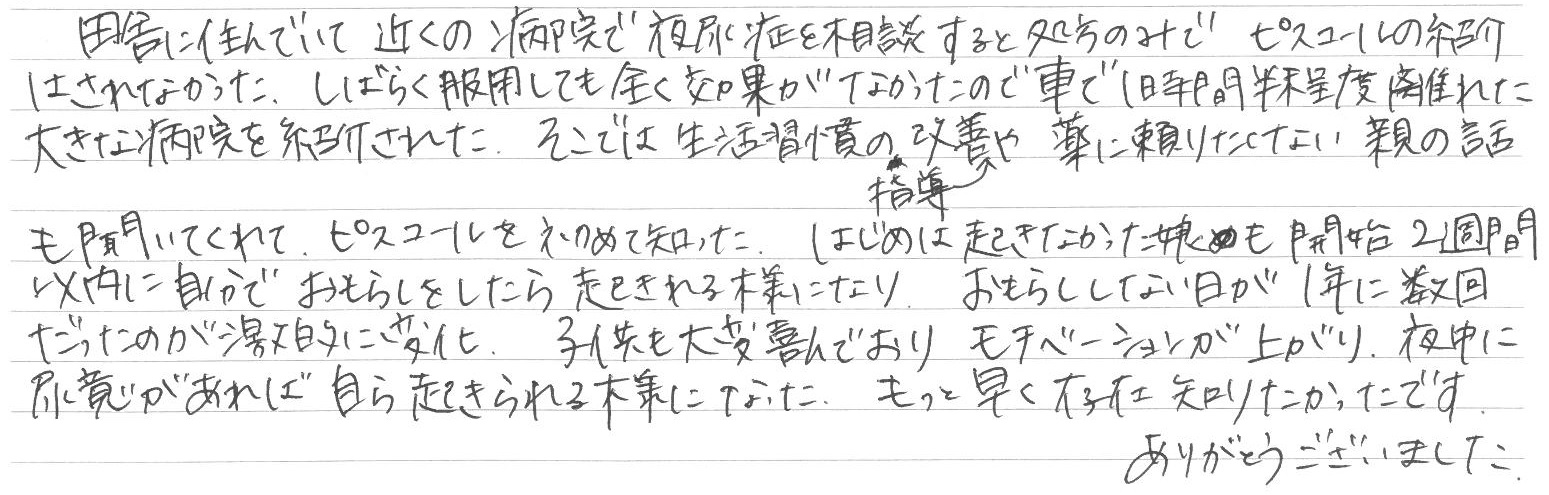 田舎に住んでいて 近くの病院で夜尿症を相談すると処方のみで ピスコールの紹介
はされなかった。しばらく服用しても全く効果がなかったので車で1時間半程度離れた
大きな病院を紹介された。そこでは生活習慣の改善や 薬に頼りたくない親の話
指導
も聞いてくれて、ピスコールを初めて知った。はじめは起きなかった娘も開始2週間
以内に自分でおもらしをしたら起きれる様になり、おもらししない日が1年に数回
だったのが激的に変化、子供も大変喜んでおりモチベーションが上がり、夜中に
尿意があれば自ら起きられる様になった。もっと早く存在知りたかったです。
ありがとうございました。